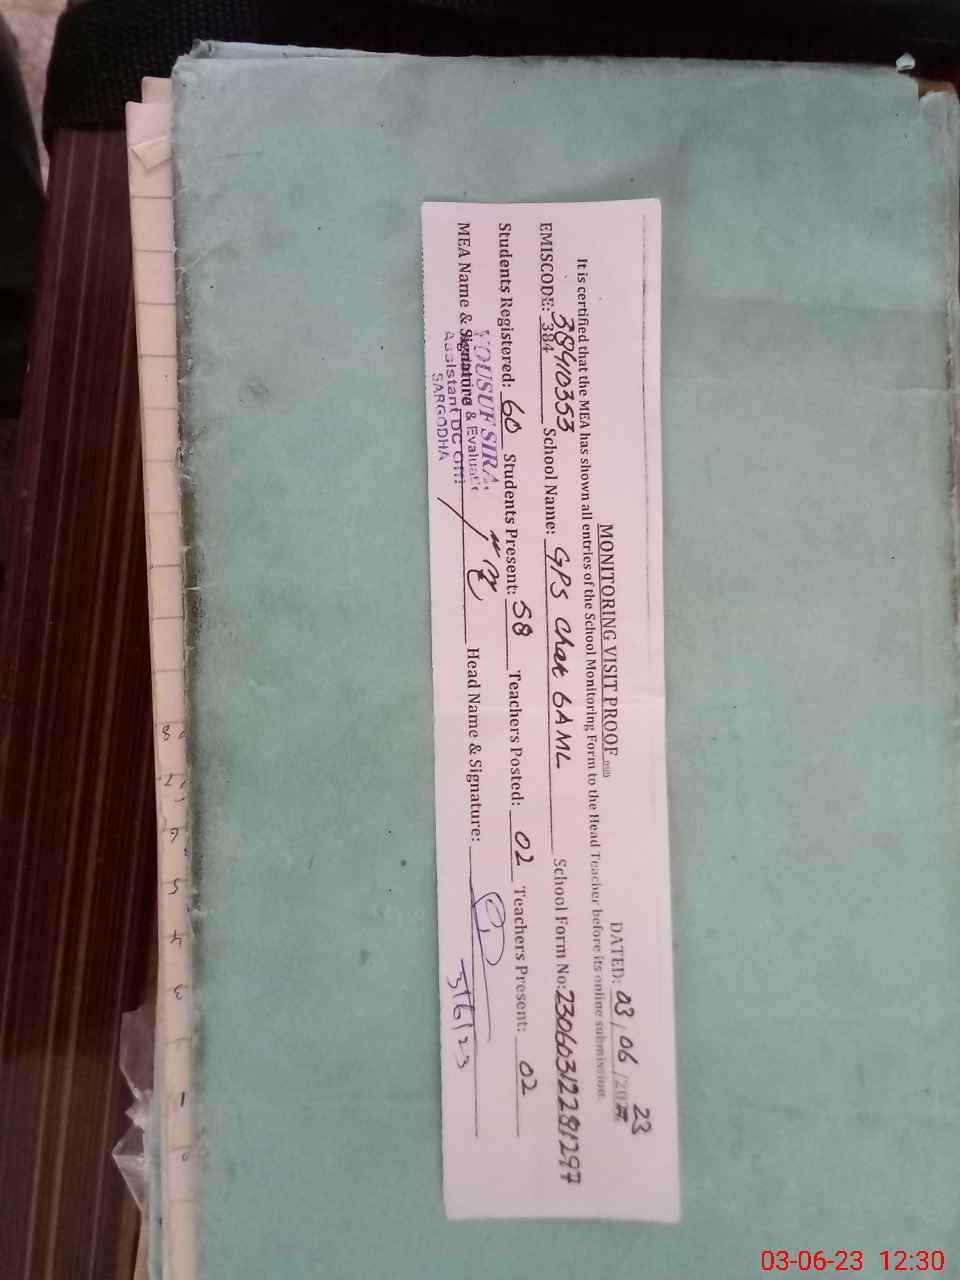 MONITORING VISIT PROOF
DATED: 03/06/2023
It is certified that the MEA has shown all entries of the School Monitoring Form to the Head Teacher before its online submission.
EMISCODE: 384 38410353 School Name: GPS Chak 6AML School Form No: 23060312281297
Students Registered: 60 Students Present: 58 Teachers Posted: 02 Teachers Present: 02
MEA Name & Signature Head Name & Signature:
YOUSUF
& Evaluat
Assistant
SARGODHA
3/6/23
8
7
6
5
4
3
1
03-06-23 12:30